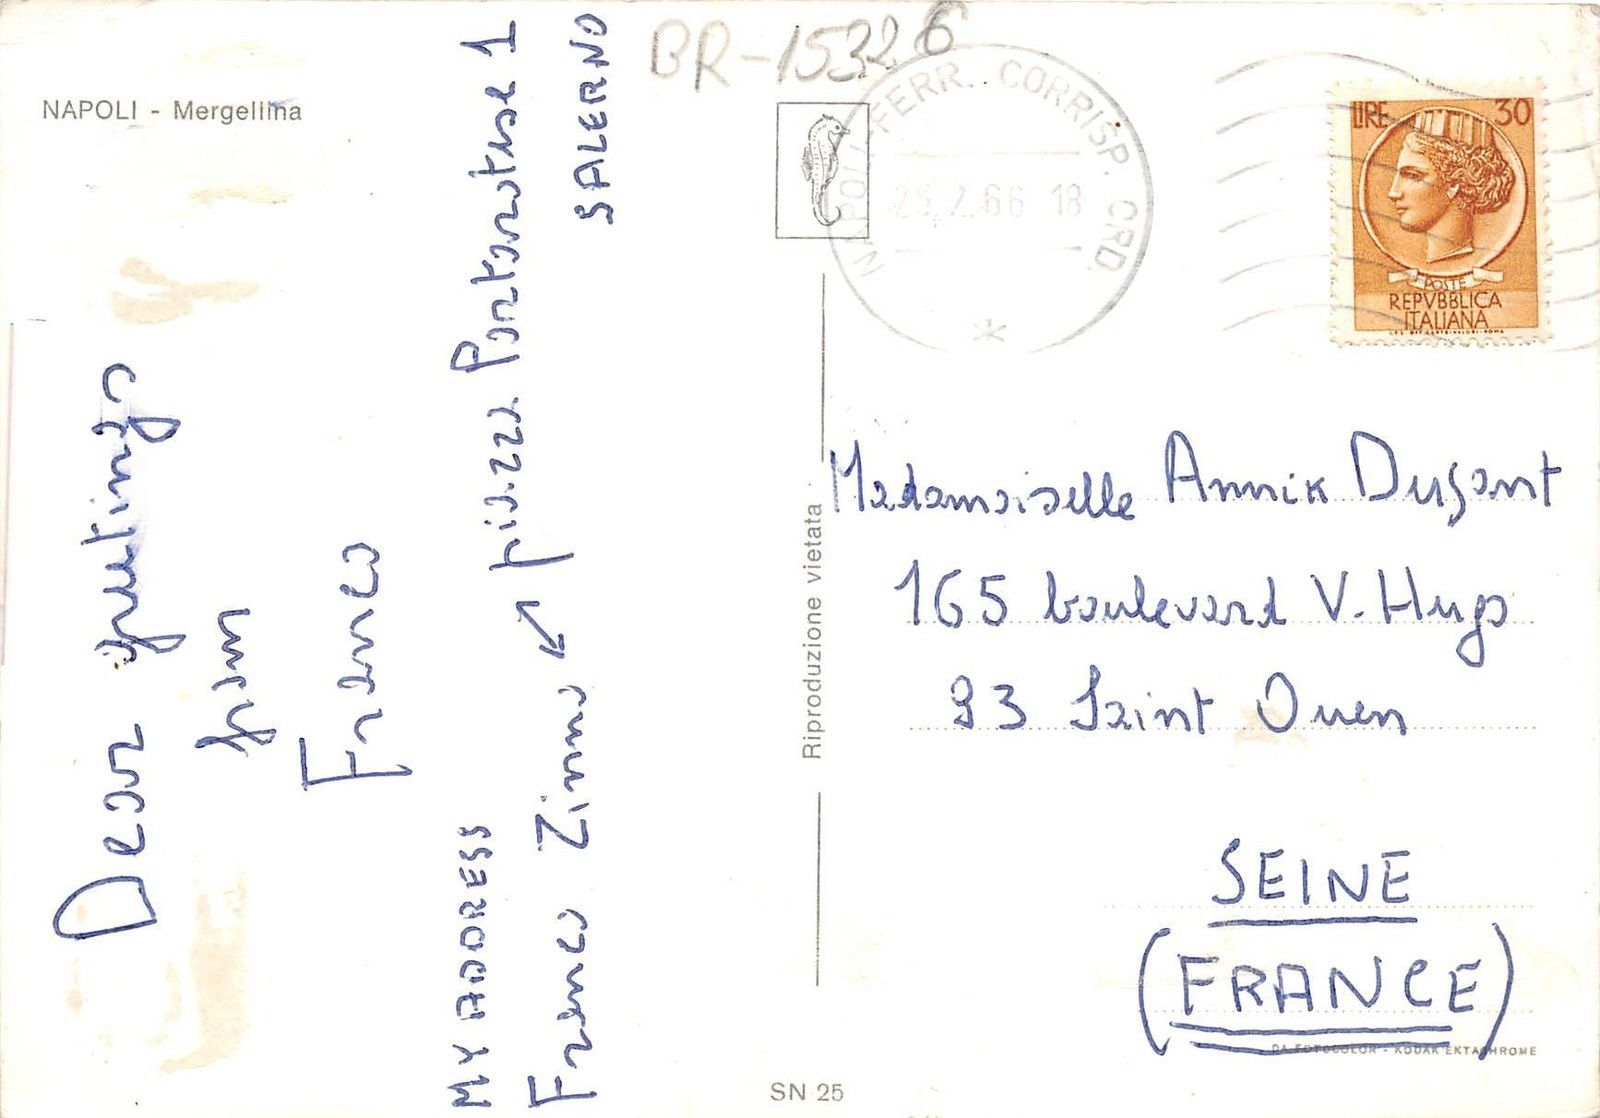 BR-15326
NAPOLI - Mergellina
NAPOLI FERR. CORRISP. CRD.
25.2.66 18
LIRE 30
POSTE
REPVBBLICA
ITALIANA
Dear greetings
from
Franco
MY ADDRESS
Franco Zinno → piazza Portarotese 1
SALERNO
Riproduzione vietata
Mademoiselle Annik Dufant
165 boulevard V. Hugo
93 Saint Ouen
SEINE
(FRANCE)
DA FOTOCOLOR - KODAK EKTACHROME
SN 25